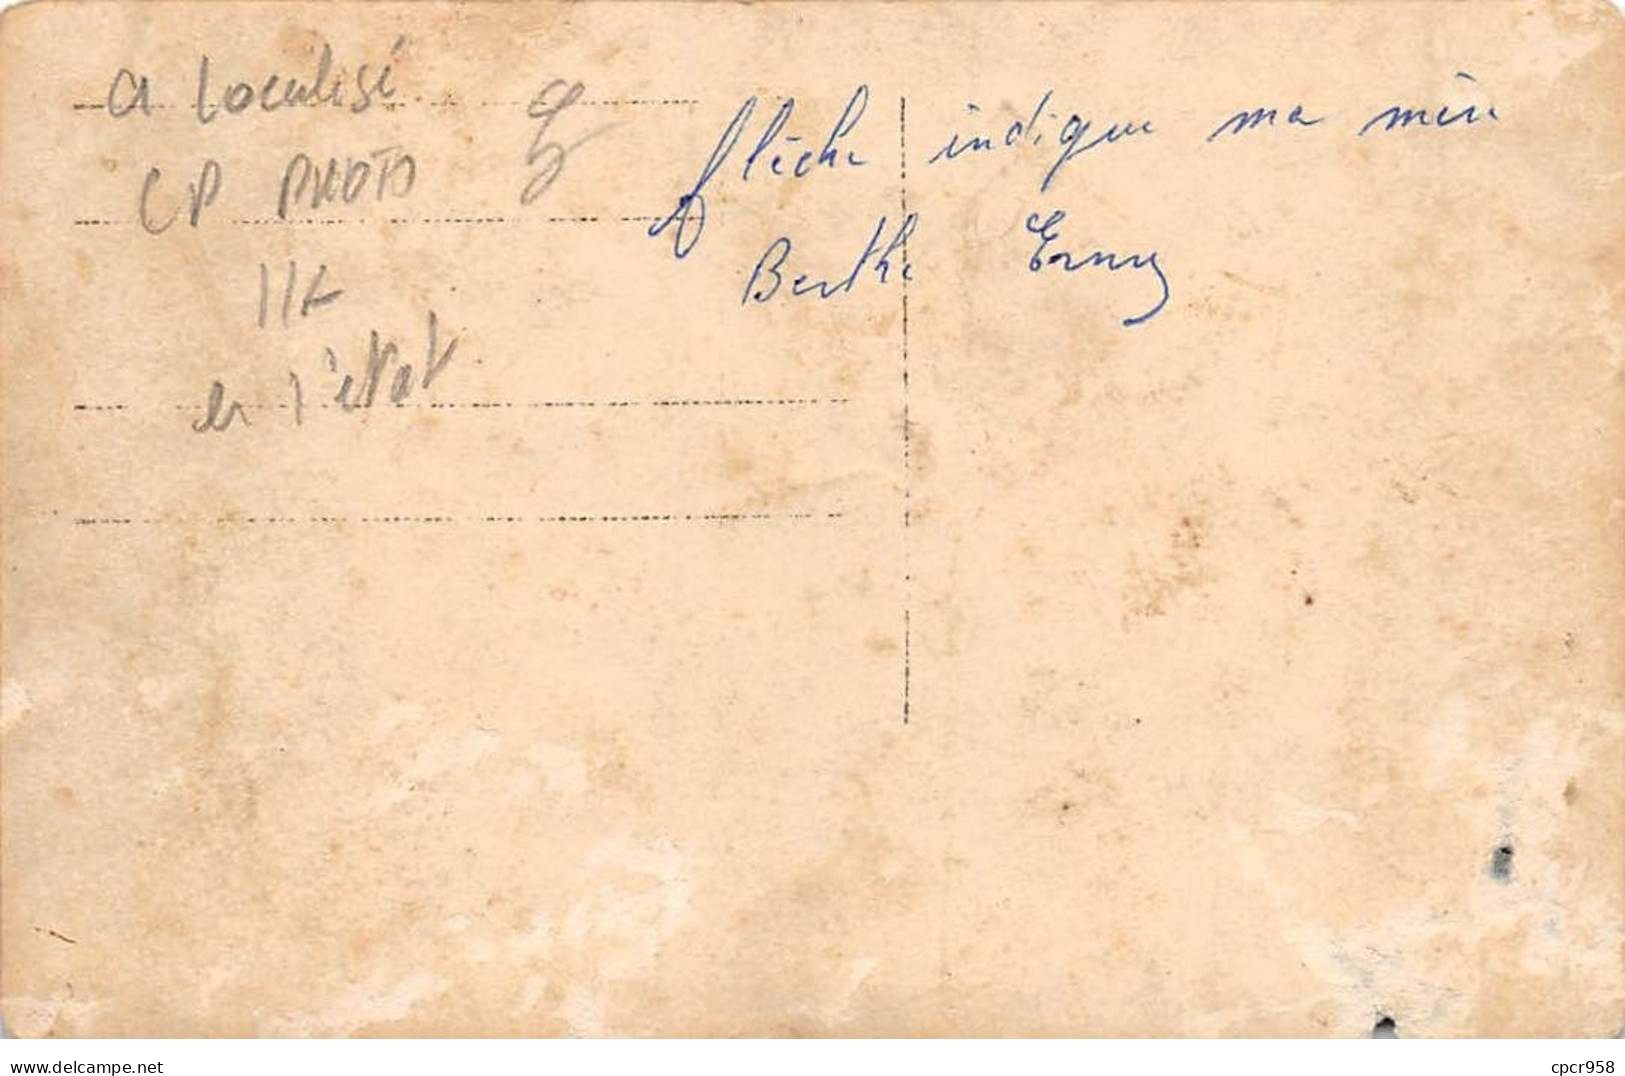 a localisé
CP PHOTO
en l'état
flèche indique ma mère
Berthe
www.delcampe.net
cpcr958